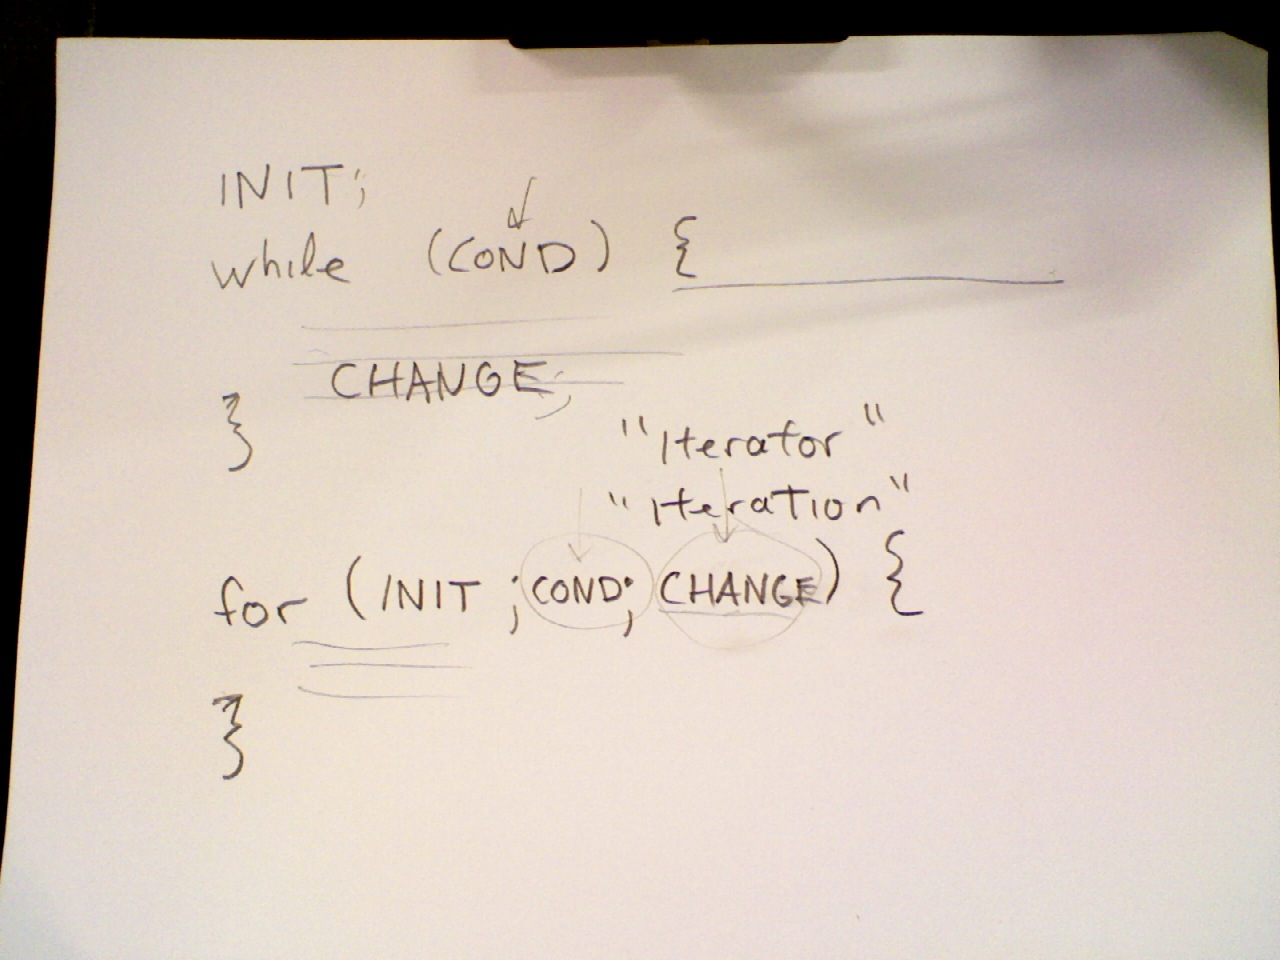 INIT;
while (COND) {
CHANGE;
}
"Iterator"
"Iteration"
for (INIT ; COND; CHANGE) {
}